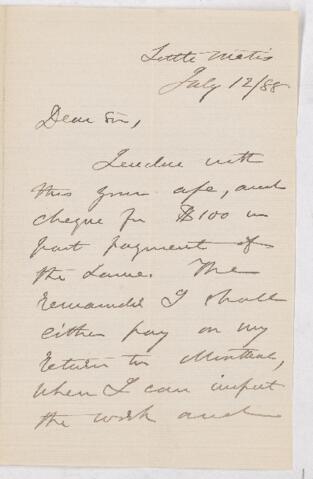 Little Metis
July 12/88
Dear Sir,
with
this your a/c, and
cheque for $100 in
part payment of
the same. The
remainder I shall
either pay on my
return to Montreal,
when I can inspect
the work and